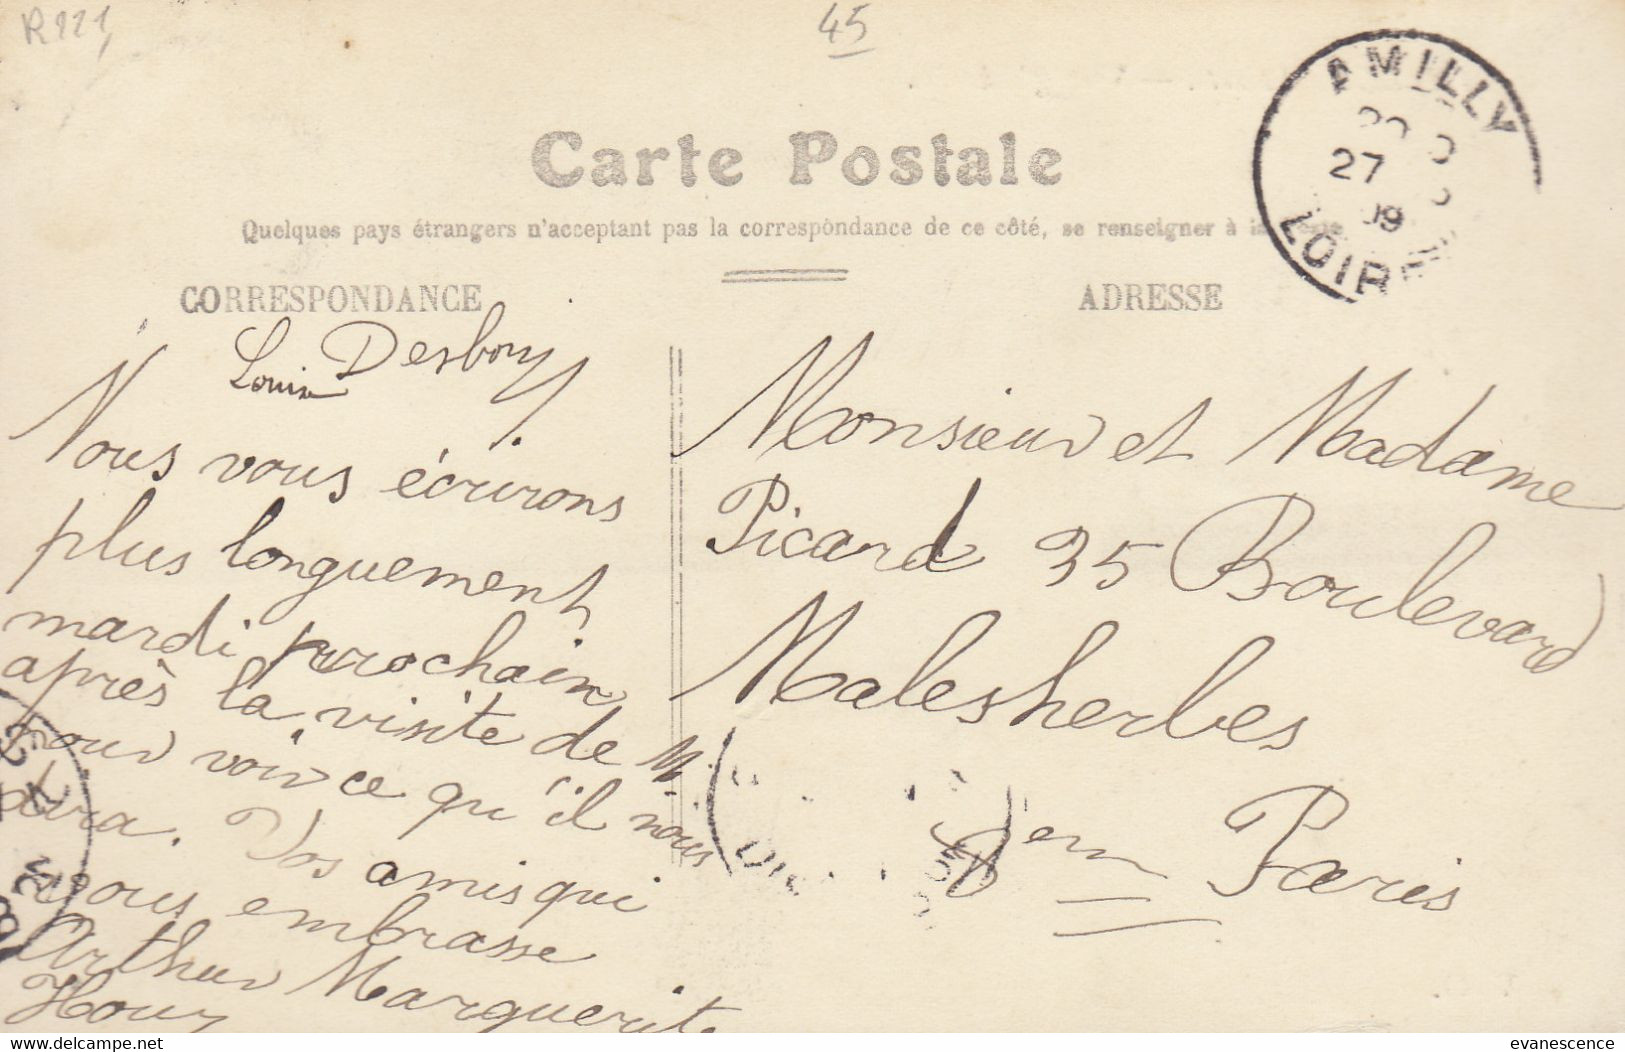 R121
45
AMILLY
27
09
LOIRE
Carte Postale
Quelques pays étrangers n'acceptant pas la correspondance de ce côté, se renseigner à la Poste
CORRESPONDANCE
ADRESSE
Louis Desbouy
Nous vous écrirons
plus longuement
mardi prochain
après la visite de M.
pour voir ce qu'il nous
dira. Vos amis qui
vous embrasse
Arthur Marguerite
Houy
Monsieur et Madame
Picard 35 Boulevard
Malesherbes
Paris
www.delcampe.net
evanescence